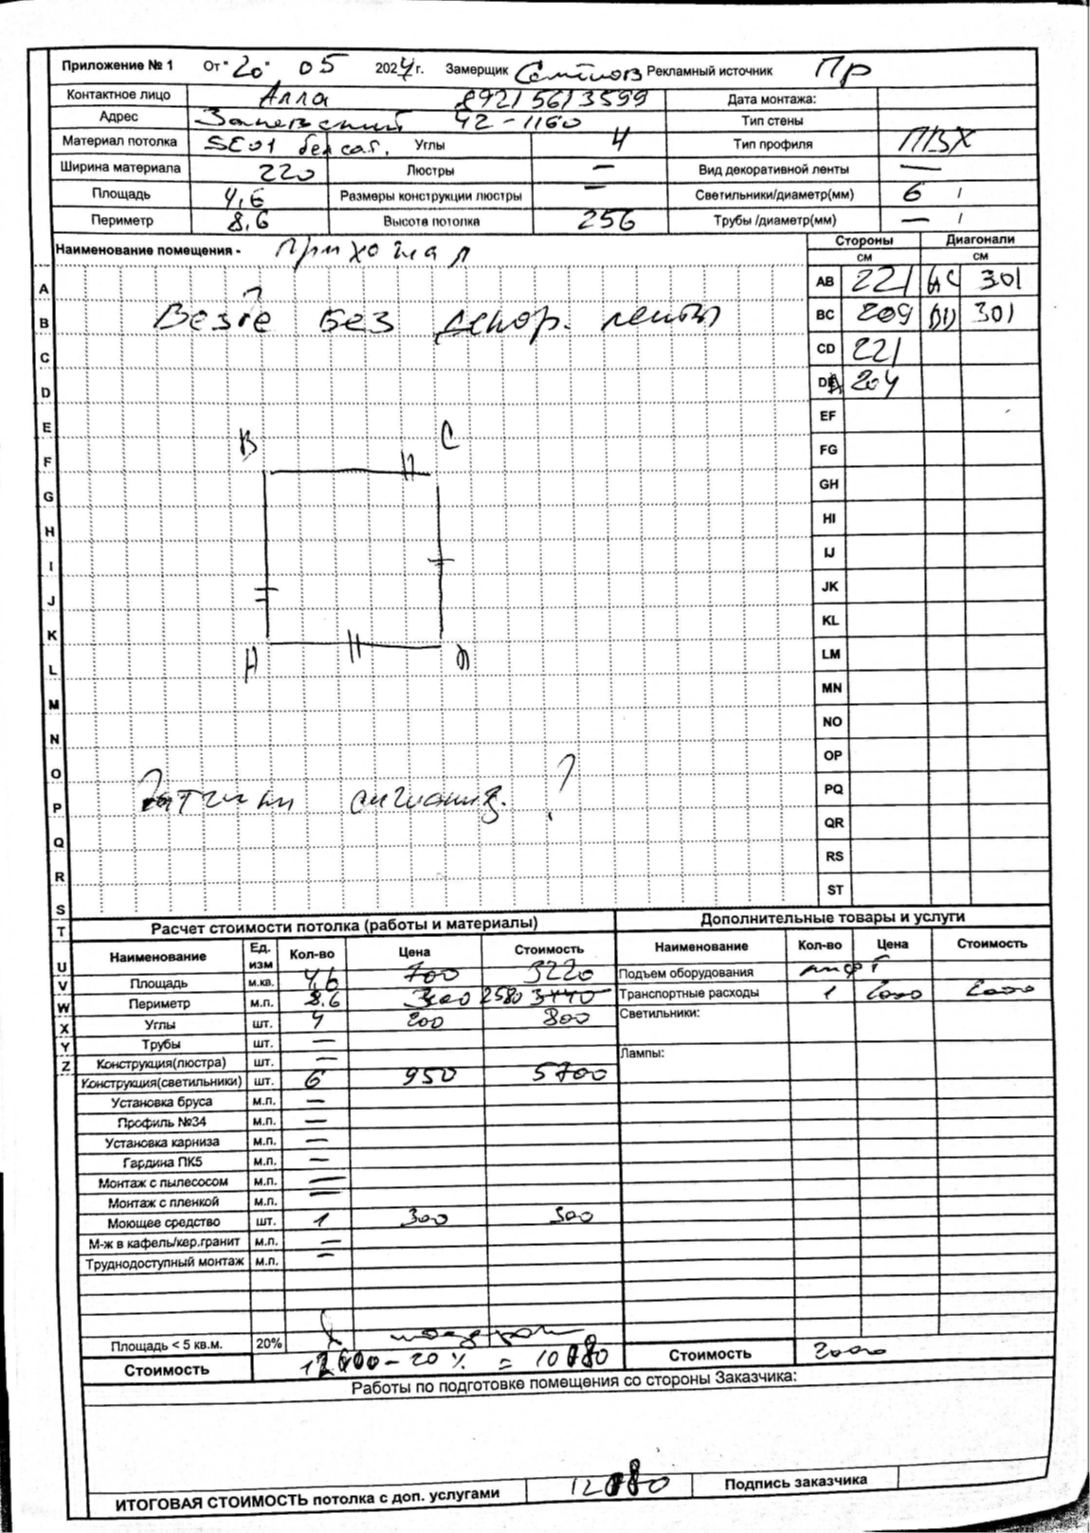 Приложение № 1 От "20" 05 2024 г. Замерщик Рекламный источник Пр
Контактное лицо Алла 89215613599 Дата монтажа:
Адрес Заневский 42-1160 Тип стены
Материал потолка SE01 бел сат. Углы 4 Тип профиля ПВХ
Ширина материала 220 Люстры — Вид декоративной ленты —
Площадь 4,6 Размеры конструкции люстры — Светильники/диаметр(мм) 6 /
Периметр 8,6 Высота потолка 256 Трубы /диаметр(мм) — /
Наименование помещения - Прихожая
Стороны Диагонали
см см
A
B
C
D
E
F
G
H
I
J
K
L
M
N
O
P
Q
R
S
T
U
V
W
X
Y
Z
Везде без декор. ленты
B C
A D
Датчики ?
AB 221 AC 301
BC 209 BD 301
CD 221
DA 204
EF
FG
GH
HI
IJ
JK
KL
LM
MN
NO
OP
PQ
QR
RS
ST
Расчет стоимости потолка (работы и материалы)
Наименование Ед. изм Кол-во Цена Стоимость
Площадь м.кв. 4,6 700 3220
Периметр м.п. 8.6 300 2580 3440
Углы шт. 4 200 800
Трубы шт. —
Конструкция(люстра) шт. —
Конструкция(светильники) шт. 6 950 5700
Установка бруса м.п. —
Профиль №34 м.п. —
Установка карниза м.п. —
Гардина ПК5 м.п. —
Монтаж с пылесосом м.п. —
Монтаж с пленкой м.п. —
Моющее средство шт. 1 300 300
М-ж в кафель/кер.гранит м.п. —
Труднодоступный монтаж м.п. —
Площадь < 5 кв.м. 20%
Стоимость - 20 % = 10080
Дополнительные товары и услуги
Наименование Кол-во Цена Стоимость
Подъем оборудования лифт
Транспортные расходы 1 2000 2000
Светильники:
Лампы:
Стоимость 2000
Работы по подготовке помещения со стороны Заказчика:
ИТОГОВАЯ СТОИМОСТЬ потолка с доп. услугами 12080 Подпись заказчика